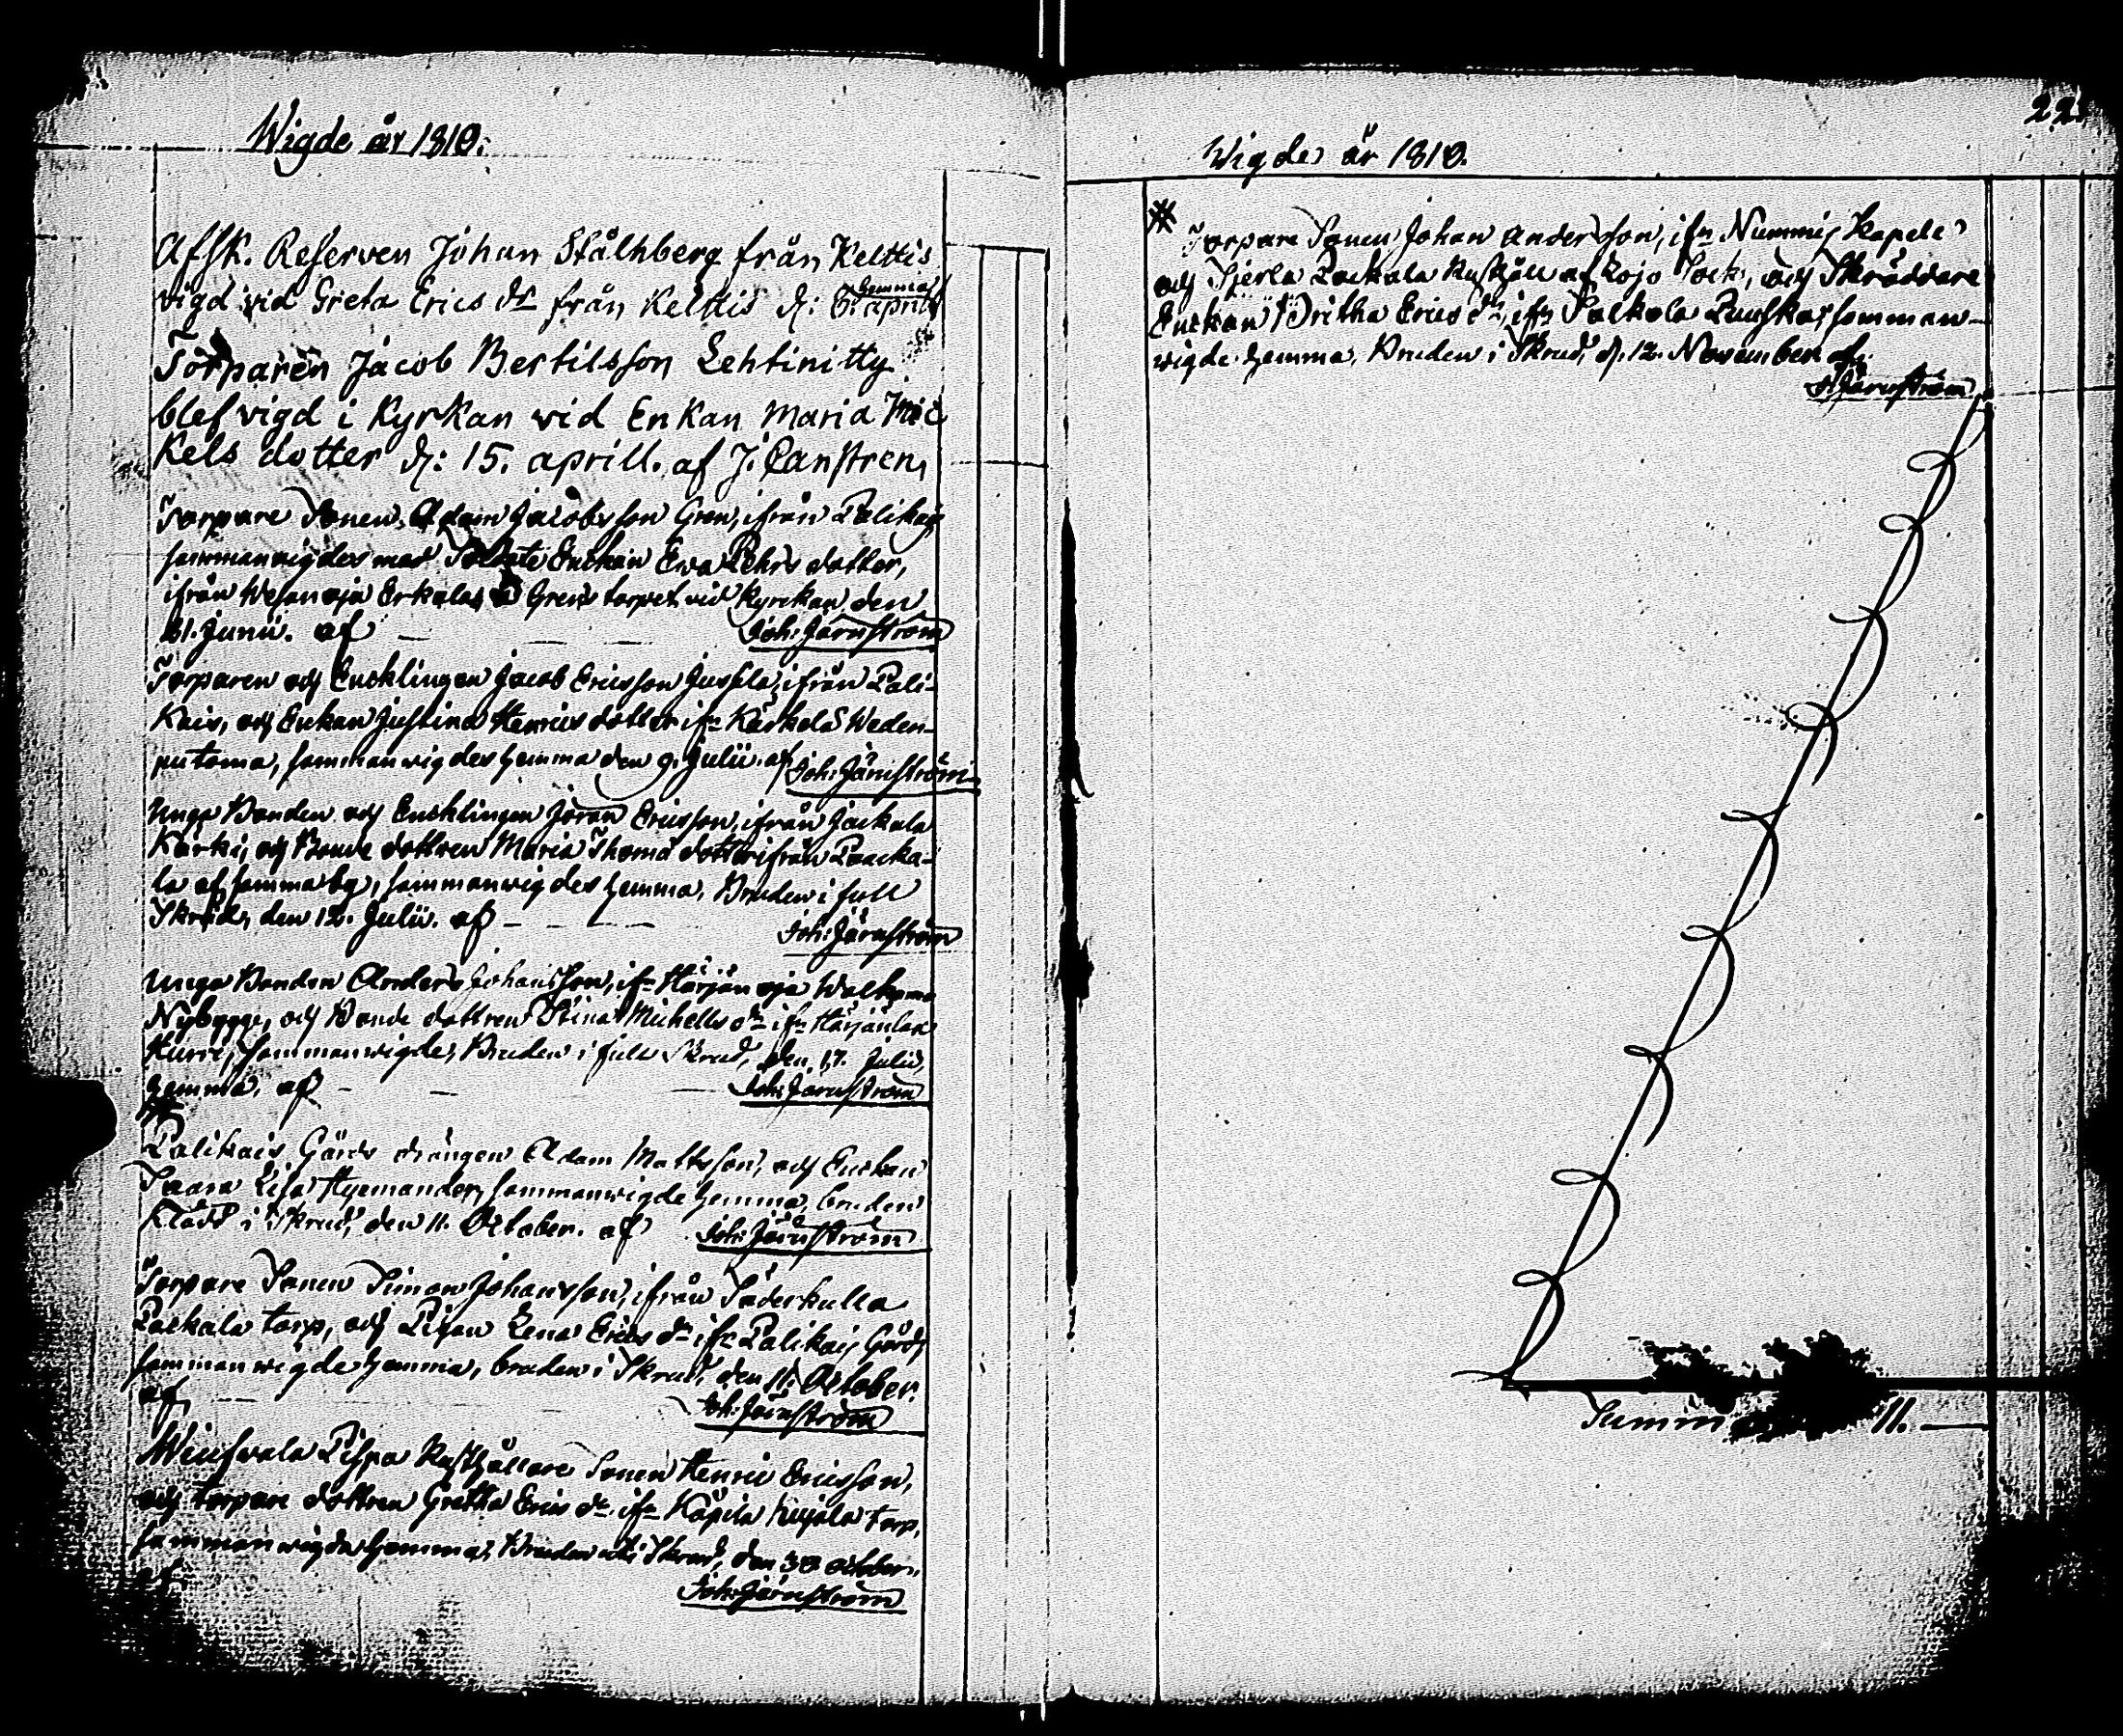 Wigde år 1810.
Afsk. Reserven Johan Stålhberg från Kelttis
Hemma
vigd vid Greta Erics dr från Kelttis d: 6. aprill
Torparen Jacob Bertilsson Lehtinitty
blef vigd i Kyrkan vid Enkan Maria Mic
kels dotter d: 15. aprill. af J. Canstren,
Torpare Sonen, Adam Jacobsson Gren, ifrån Palikais
sammanvigdes med Enckan Ewa Pehrs dotter,
ifrån Wesanoja Erkala Grens torpet vid Kyrckan, den
Junii. af Joh: Järnström
Torparen och Encklingen Jacob Ericsson Jussila, ifrån Pali-
kais, och Enckan Justina Henrics dotter ifn Karkola Weden-
putoma, sammanwigdes hemma den 9. Julii. af Joh: Järnström
Unga Bonden och Encklingen Jöran Ericsson, ifrån Jackala
Kärki, och Bonde dottren Maria Thoma dotter ifrån Paacka-
la af samma by, sammanwigdes hemma, Bruden i full
Skrud, den 12. Julii. af Joh: Järnström
Unga Bonden Anders Johansson, ifn Härjänoja
Nybygge, och Bonde dottren Stina Michells dr ifn
Hurri, sammanwigde, Bruden i full Skrud, den 17. Julii,
hemma, af Joh: Järnström
Palikais Gårds drängen Adam Mattsson, och Enckan
Lisa sammanwigde hemma, bruden
Klädd i Skrud, den 11. October. af Joh: Järnström
Torpare Sonen Simon Johansson, ifrån Söderkulla
Packala torp, och Pigan Lena Erics dr ifn Palikais Gård,
sammanwigde hemma, bruden i Skrud, den 11. October.
af Joh: Järnström
Pispa Rusthållare Sonen Henric Ericsson,
och torpare dottren Gretha Erics dr ifn Käpilä Kujala torp,
sammanwigde hemma, Bruden i Skrud, den 30 october,
af Joh: Järnström
22.
Wigde år 1810.
Torpare Sonen Johan Andersson, ifn Nummis Kapele
och Packala Rusthåll af Lojo Sock, och Skräddare
Enckan Britha Erics dr, ifn Packala samman-
wigde hemma, Bruden i Skrud, d. 12. November af
J. Järnström
Summa 11.